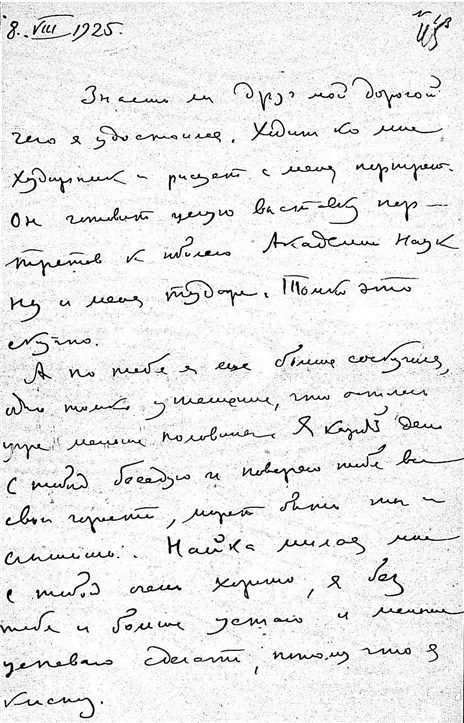 8. VIII 1925.
Знаешь ли друг мой дорогой
чего я удостоился. Ходит ко мне
художник и рисует с меня портрет.
Он готовит целую выставку пор-
третов к юбилею Академии Наук
ну и меня туда же. Только это
скучно.
А по тебе я еще больше соскучился,
одно только утешение, что осталось
уже меньше половины. Я каждый день
с тобой беседую и поверяю тебе все
свои горести, может быть ты и
слышишь. милая мне
с тобой очень хорошо, я без
тебя и больше устаю и меньше
успеваю сделать, потому что я
кисну.